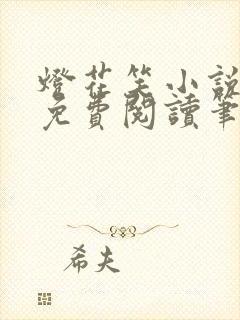 燈花笑小說
免費閱讀筆
希夫